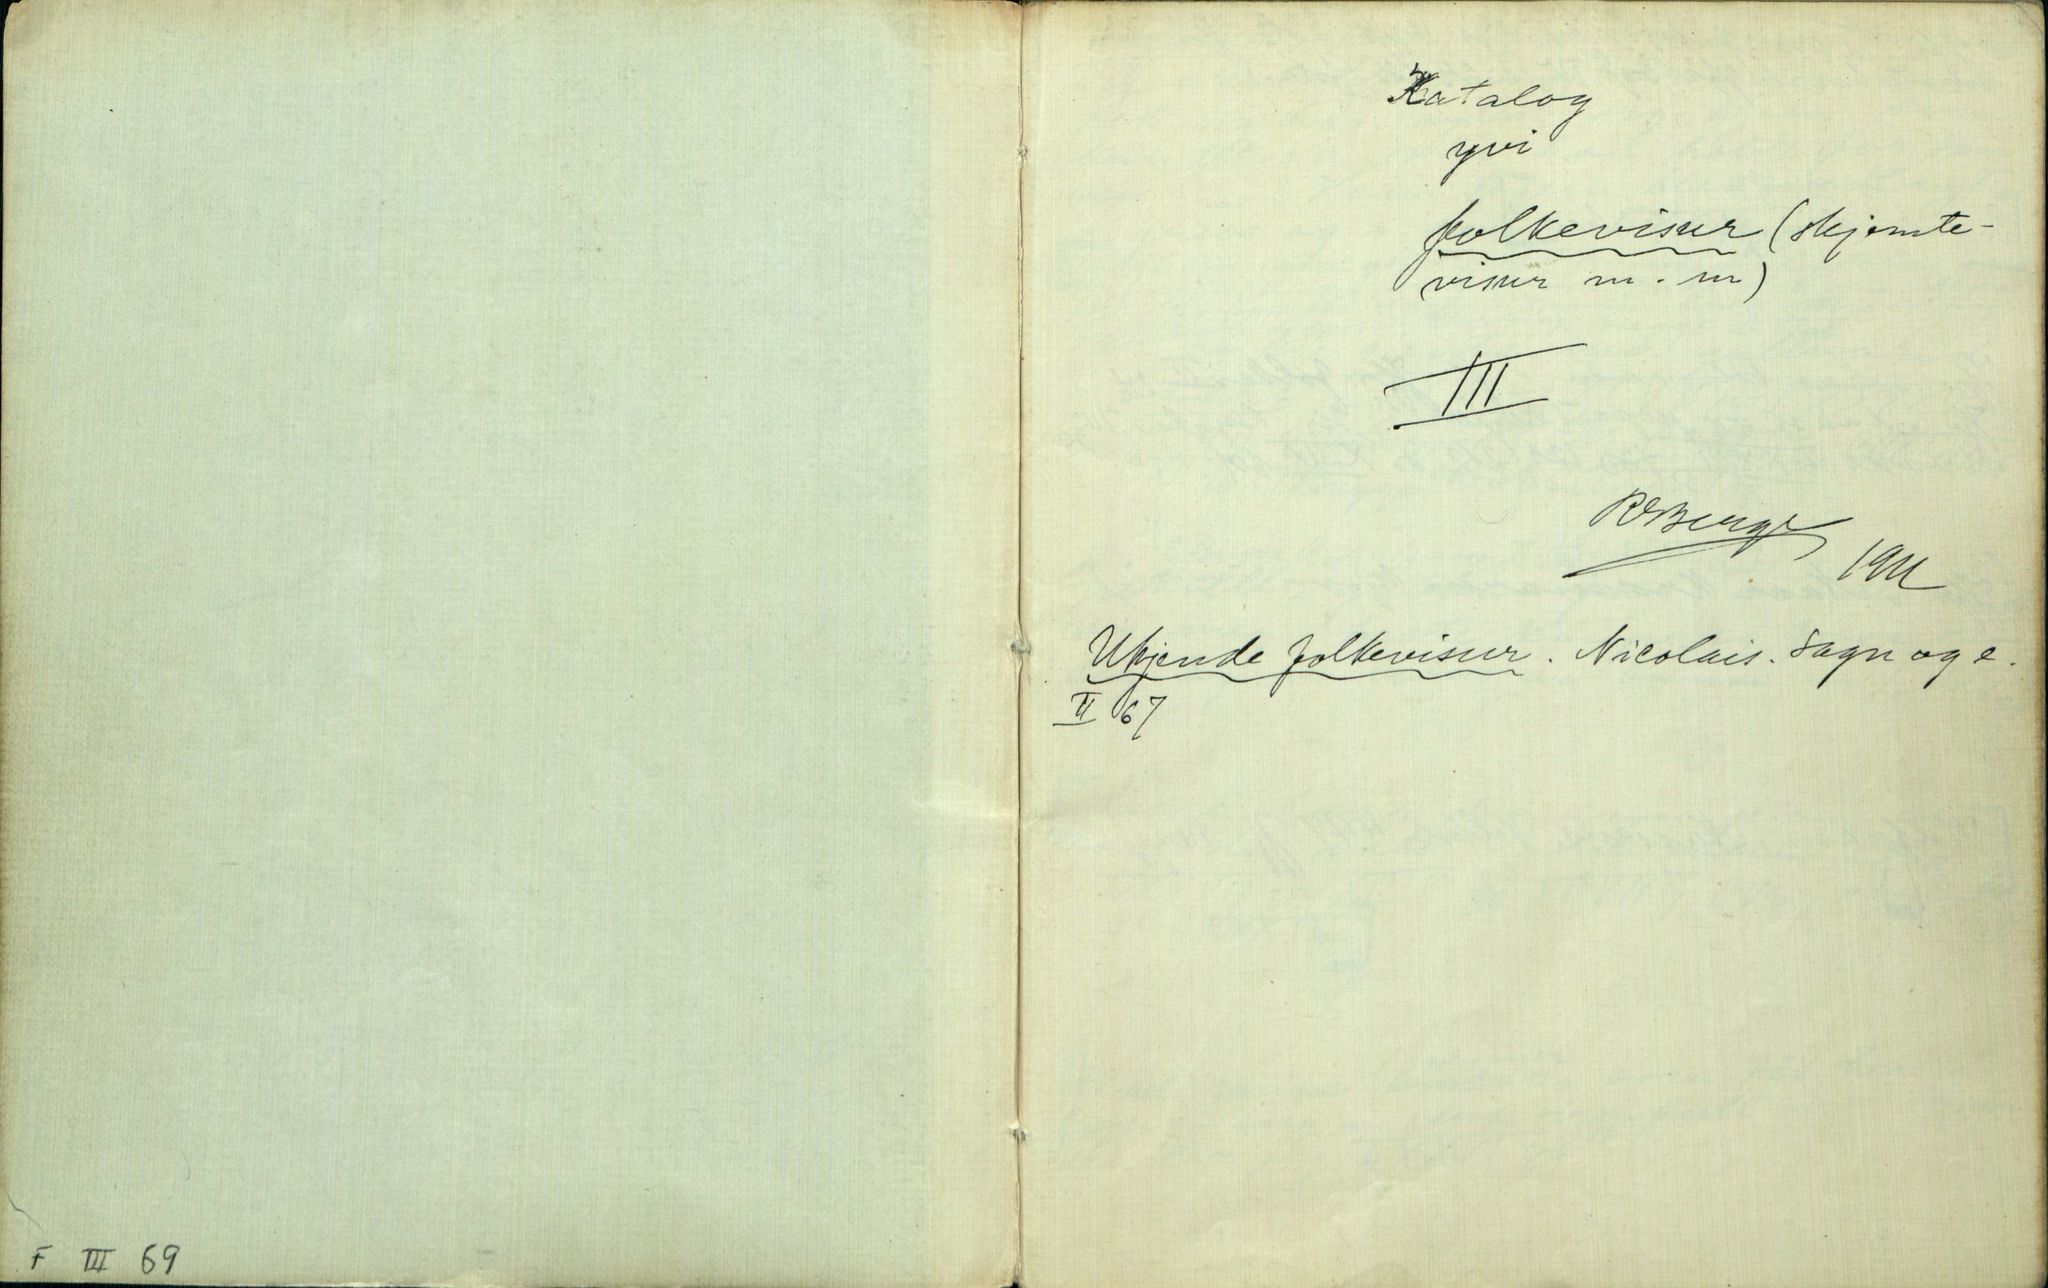 Katalog
yvi
folkevisur (skjemte-
visur m. m)
III
RBerge
1911
Ukjende folkevisur. Nicolais. Sagn og e.
II 67
F III 69